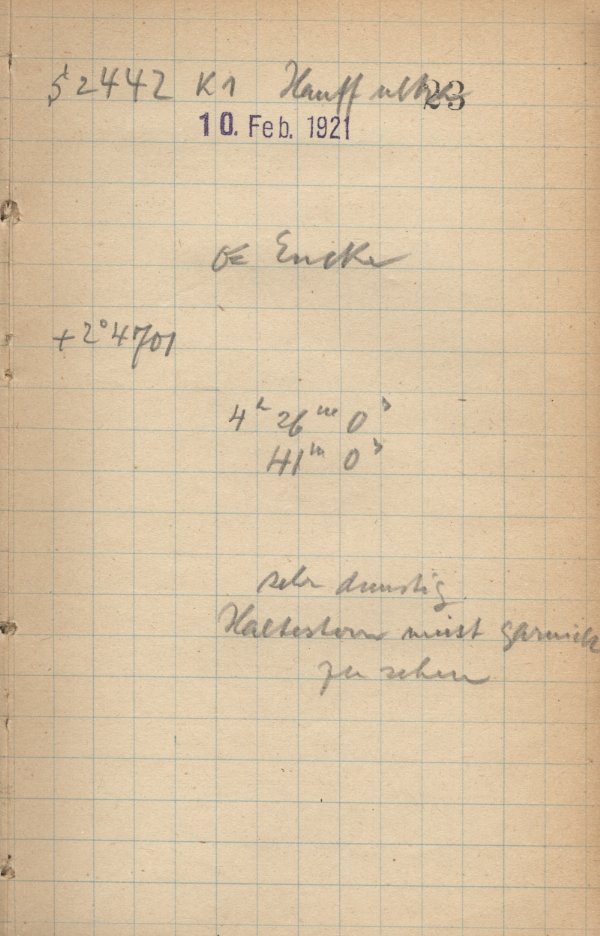 S 2442 K1 Hauff ultra 23
10. Feb. 1921
Encke
+2°4701
4h 26m 0s
41m 0s
sehr dunstig
Haltestern meist garnicht
zu sehen